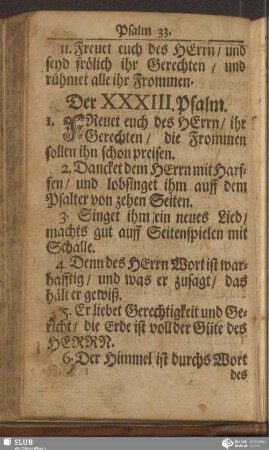 Psalm 33.
11. Freuet euch des HErrn/ und
seyd frölich ihr Gerechten/ und
rühmet alle ihr Frommen.
Der XXXIII. Psalm.
1. FReuet euch des HErrn/ ihr
Gerechten/ die Frommen
sollen ihn schon preisen.
2. Dancket dem HErrn mit Harf-
fen/ und lobsinget ihm auff dem
Psalter von zehen Seiten.
3. Singet ihm ein neues Lied/
machts gut auff Seitenspielen mit
Schalle.
4. Denn des HErrn Wort ist war-
hafftig/ und was er zusagt/ das
hält er gewiß.
5. Er liebet Gerechtigkeit und Ge-
richt/ die Erde ist voll der Güte des
HERRN.
6. Der Himmel ist durchs Wort
des
SLUB